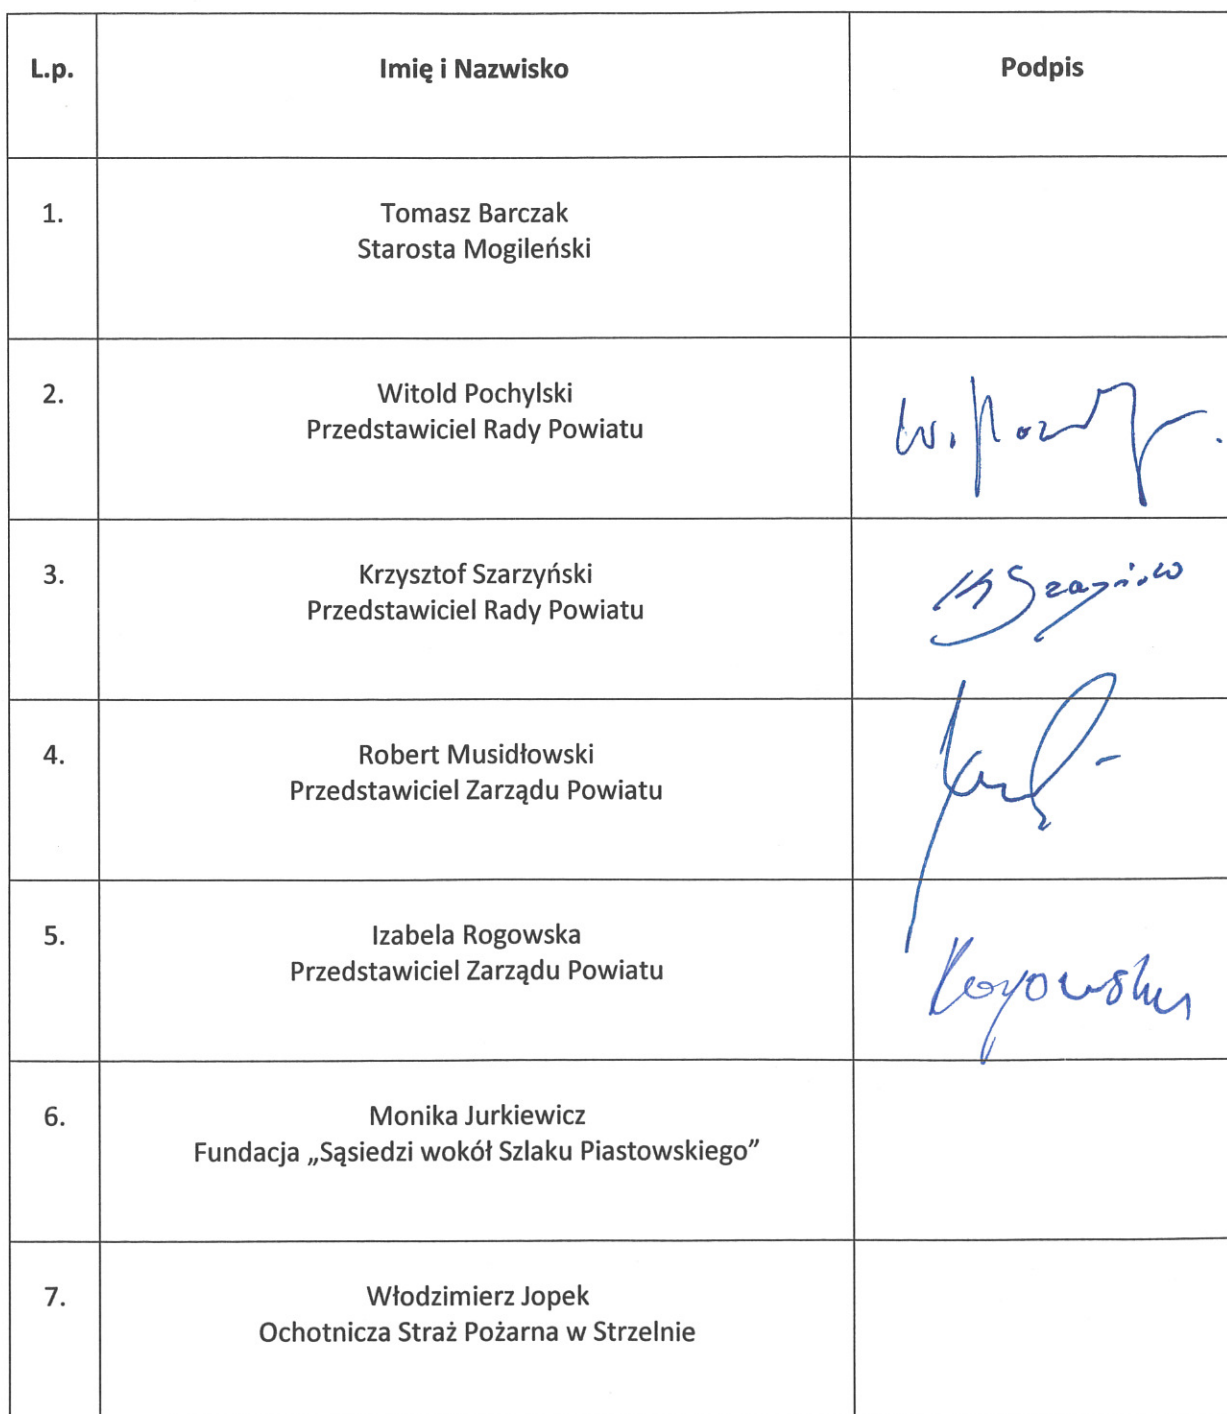 L.p. Imię i Nazwisko Podpis
1. Tomasz Barczak
Starosta Mogileński
2. Witold Pochylski
Przedstawiciel Rady Powiatu
3. Krzysztof Szarzyński
Przedstawiciel Rady Powiatu
4. Robert Musidłowski
Przedstawiciel Zarządu Powiatu
5. Izabela Rogowska
Przedstawiciel Zarządu Powiatu
6. Monika Jurkiewicz
Fundacja „Sąsiedzi wokół Szlaku Piastowskiego”
7. Włodzimierz Jopek
Ochotnicza Straż Pożarna w Strzelnie